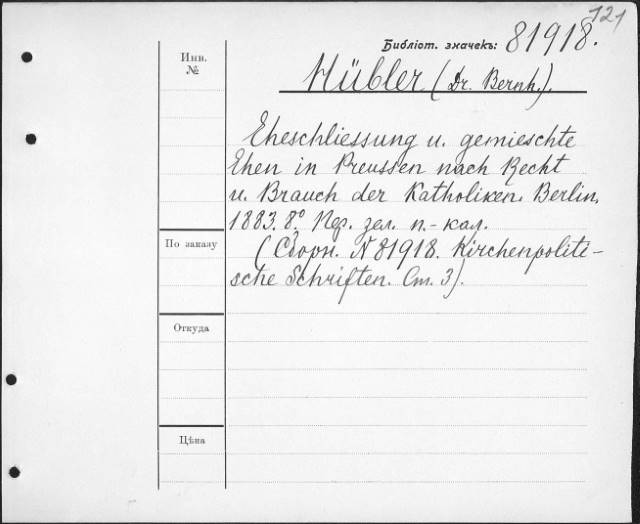 121
Библіот. значекъ: 81918.
Инв.
№
Hübler (Dr. Bernh.).
Eheschliessung u. gemieschte
Ehen in Preussen nach Recht
u. Brauch der Katholiken. Berlin,
1883. 8.º Пер. зел. п.-кал.
По заказу
(Сборн. N 81918. Kirchenpoliti-
sche Schriften. Ст. 3).
Откуда
Цѣна